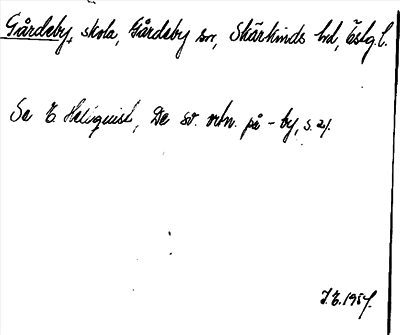 Gårdeby, skola, Gårdeby sn, Skärkinds hd, Östg.l.
Se E Hellquist, De sv. ortn. på -by, s. 21.
J.E. 1957.